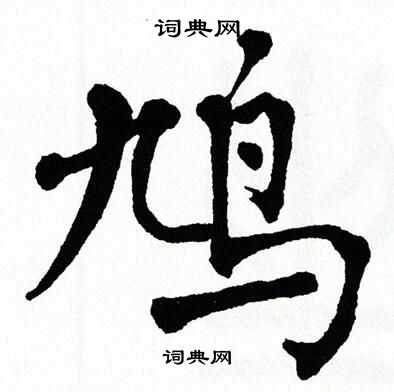 词典网
鸠
词典网